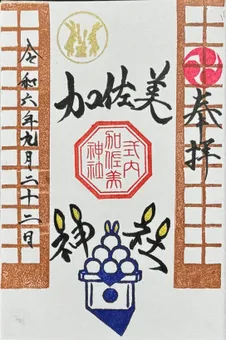 奉拝
加佐美
式内
加佐美
神社
神社
令和六年九月二十二日